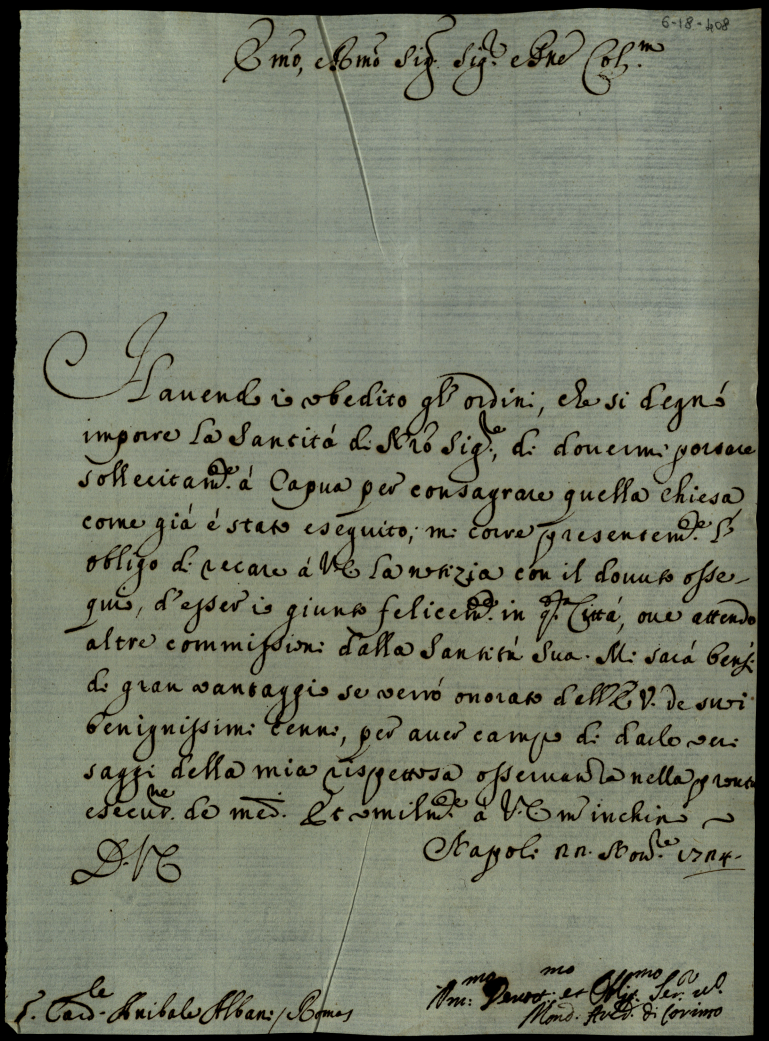 6-18-408
Emo, e Rmo Sig.r Sig.r e Prne Col.mo
Havend io obedito gl' ordini, che si degnó
imporre la Santitá di Nro Sig.re, di dovermi portare
sollecitam.te á Capua per consagrare quella chiesa
come giá é stato eseguito; mi corre presentem.te l'
obligo di recare á V.E. la notizia con il dovuto osse-
quio, d'esser io giunto felicem.te in q.ta Cittá, ove attendo
altre commissioni dalla Santitá Sua. Mi sará bensi
di gran vantaggio se verró onorato dell'E.V. de suoi
benignissimi cenni, per aver campo di darle veri
saggi della mia rispettosa osservanza nella pronta
esecuz.ne de med.i Et umilm.te á V.E. m'inchino
D.V.E. Napoli 22. Nov.re 1724.
S. Card.le Anibale Albani / Roma
Um.mo Devot.mo et Obl.mo Ser.re
Mond. Arciv. di Corinto